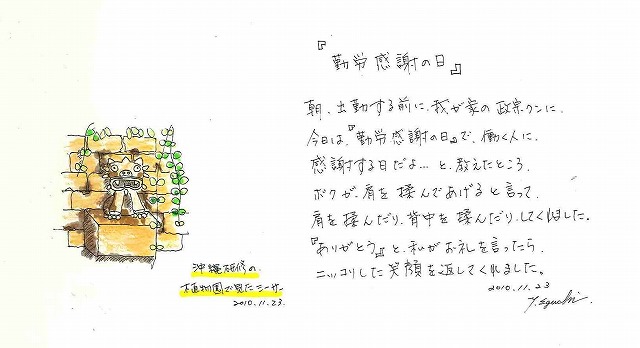 『勤労感謝の日』
朝、出勤する前に、我が家の政宗クンに、
今日は『勤労感謝の日』で、働く人に、
感謝する日だよ…と、教えたところ、
ボクが、肩を揉んであげると言って、
肩を揉んだり、背中を揉んだり、してくれました。
『ありがとう』と、私がお礼を言ったら、
ニッコリした笑顔を返してくれました。
2010.11.23
Y. Eguchi
沖縄研修の、
植物園で見たシーサー
2010.11.23.